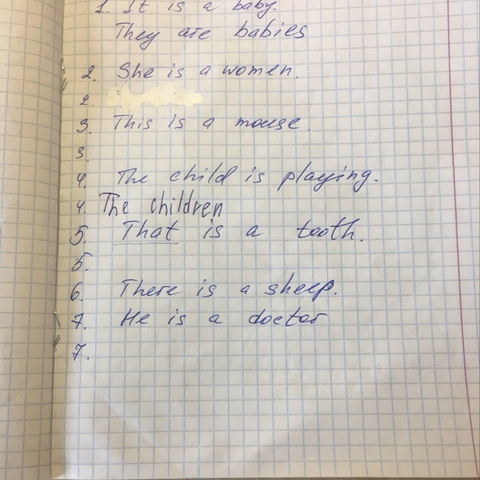 1. It is a baby.
They are babies
2. She is a women.
2.
3. This is a mouse.
3.
4. The child is playing.
4. The children
5. That is a tooth.
5.
6. There is a sheep.
7. He is a doctor
7.